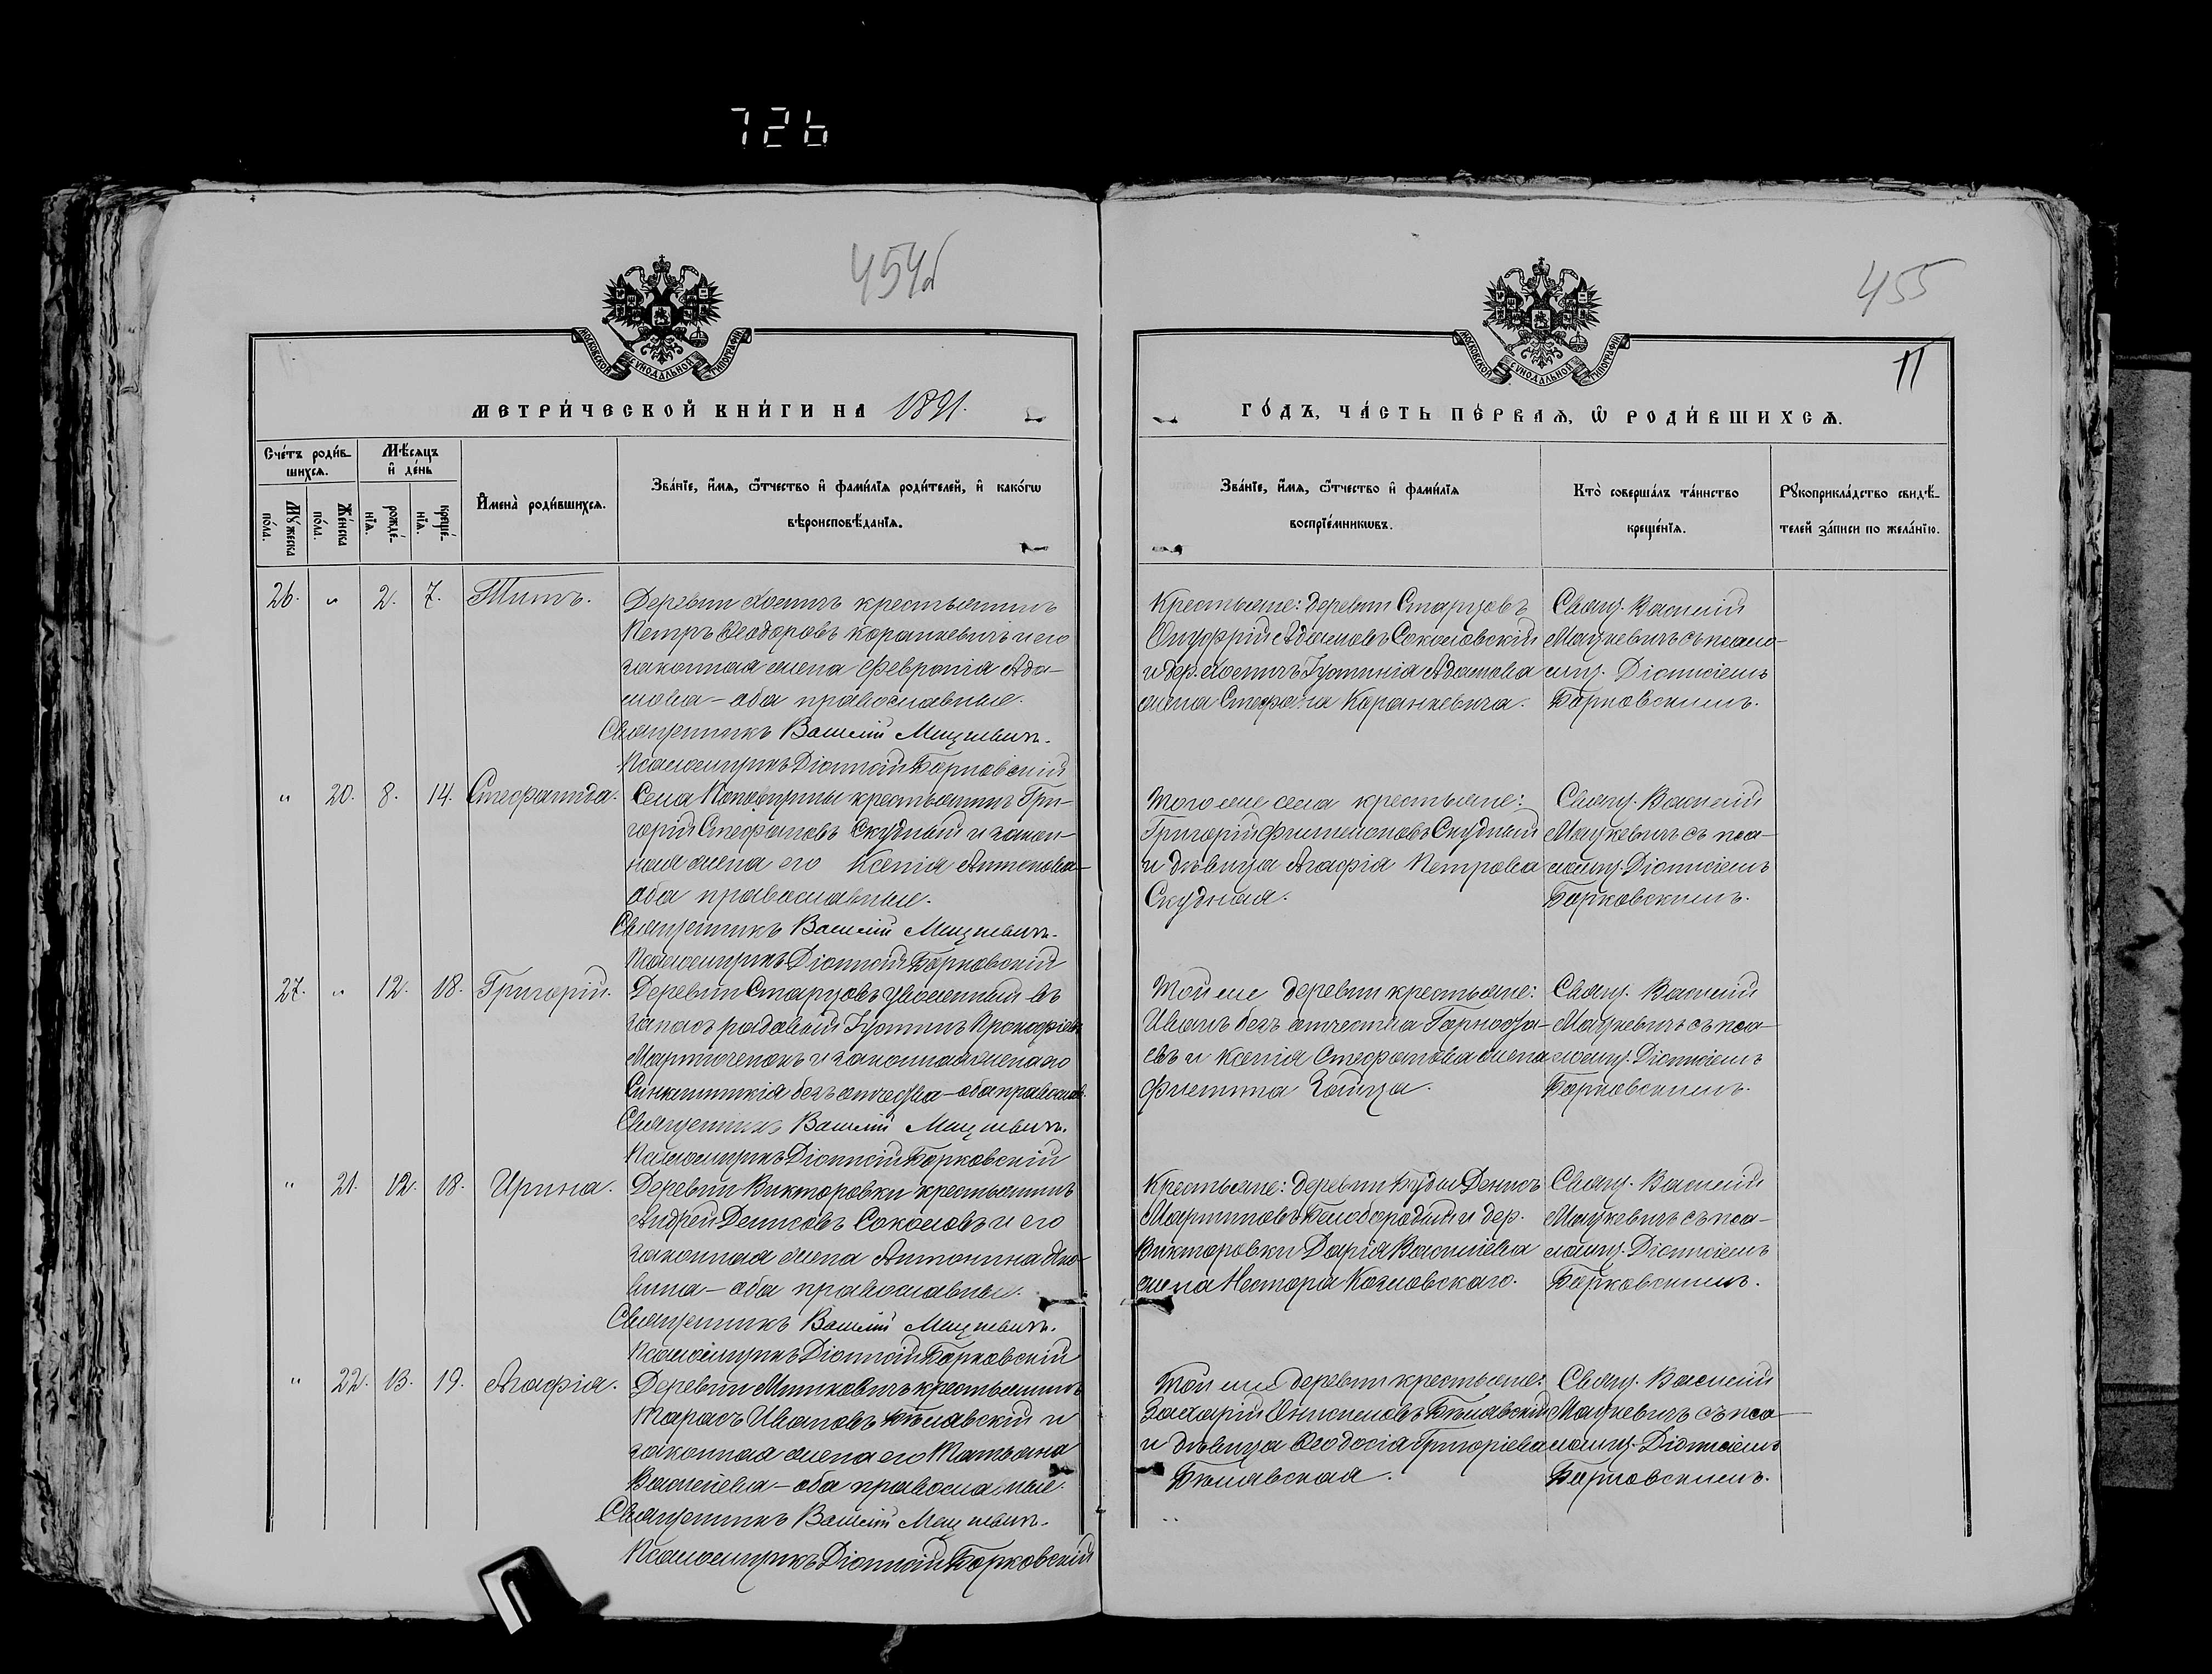 726
454об
455
11
МОСКОВСКОЙ СѴНОДАЛЬНОЙ ТИПОГРАФІИ
МОСКОВСКОЙ СѴНОДАЛЬНОЙ ТИПОГРАФІИ
МЕТРИ́ЧЕСКОЙ КНИ́ГИ НА 1891.
ГО́ДЪ, ЧА́СТЬ ПЕ́РВАЯ, Ѿ РОДИ́ВШИХСЯ.
Сче́тъ роди́в-
шихся.
Мѣ́сяцъ
и҆ де́нь
Му́жеска
по́ла.
Же́нска
по́ла.
рожде́-
нїя.
креще́-
нїя.
И҆мена̀ роди́вшихся.
Зва́нїе, и҆́мя, ѻ҆́тчество и҆ фами́лїя роди́телей, и҆ како́гѡ
вѣроисповѣ́данїя.
Зва́нїе, и҆́мя, ѻ҆́тчество и҆ фами́лїя
воспрїе́мникѡвъ.
Кто̀ соверша́лъ та́инство
креще́нїя.
Рꙋкоприкла́дство свидѣ́-
телей за́писи по жела́нїю.
26. " 2. 7. Титъ.
Деревни крестьянинъ
Петръ Ѳеодоровъ Коранкевичъ и его
законная жена Февронія Ада-
мова – оба православные.
Священникъ Василій Мацкевичъ.
Псаломщикъ Діонисій Барковскій
Крестьяне: деревни Старцовъ
Онуфрій Адамовъ Соколовскій
и дер. Іустинія Адамова
жена Стефана Коранкевича.
Свящ. Василій
Мацкевичъ съ псало-
мщ. Діонисіемъ
Барковскимъ.
" 20. 8. 14. Стефанида.
Села Поповщины крестьянинъ Гри-
горій Стефановъ Скудный и закон-
ная жена его Ксенія Антонова –
оба православные.
Священникъ Василій Мацкевичъ.
Псаломщикъ Діонисій Барковскій
Того же села крестьяне:
Григорій Филимоновъ Скудный
и дѣвица Агафія Петрова
Скудная.
Свящ. Василій
Мацкевичъ съ пса-
ломщ. Діонисіемъ
Барковскимъ.
27. " 12. 18. Григорій.
Деревни Старцовъ уволенный въ
запасъ рядовый Іустинъ Прокофіевъ
Мартиченокъ и законная жена его
Синклитикія безъ отчества – оба правосл.
Священникъ Василій Мацкевичъ.
Псаломщикъ Діонисій Барковскій
Той же деревни крестьяне:
Иванъ безъ отчества
и Ксенія Стефанова жена
Свящ. Василій
Мацкевичъ съ пса-
ломщ. Діонисіемъ
Барковскимъ.
" 21. 12. 18. Ирина.
Деревни Викторовки крестьянинъ
Андрей Денисовъ Соколовъ и его
законная жена Антонина Яко-
влева – оба православные.
Священникъ Василій Мацкевичъ.
Псаломщикъ Діонисій Барковскій
Крестьяне: деревни Буды Денисъ
Мартиновъ Белобородый и дер.
Викторовки Дарія Василіева
жена Нестора Козловскаго.
Свящ. Василій
Мацкевичъ съ пса-
ломщ. Діонисіемъ
Барковскимъ.
" 22. 13. 19. Агафія.
Деревни Минковичъ крестьянинъ
Тарасъ Ивановъ Бѣлявскій и
законная жена его Татьяна
Василіева – оба православные.
Священникъ Василій Мацкевичъ.
Псаломщикъ Діонисій Барковскій
Той же деревни крестьяне:
Захарій Онисимовъ Бѣлявскій
и дѣвица Ѳеодосія Григоріева
Бѣлявская.
Свящ. Василій
Мацкевичъ съ пса-
ломщ. Діонисіемъ
Барковскимъ.